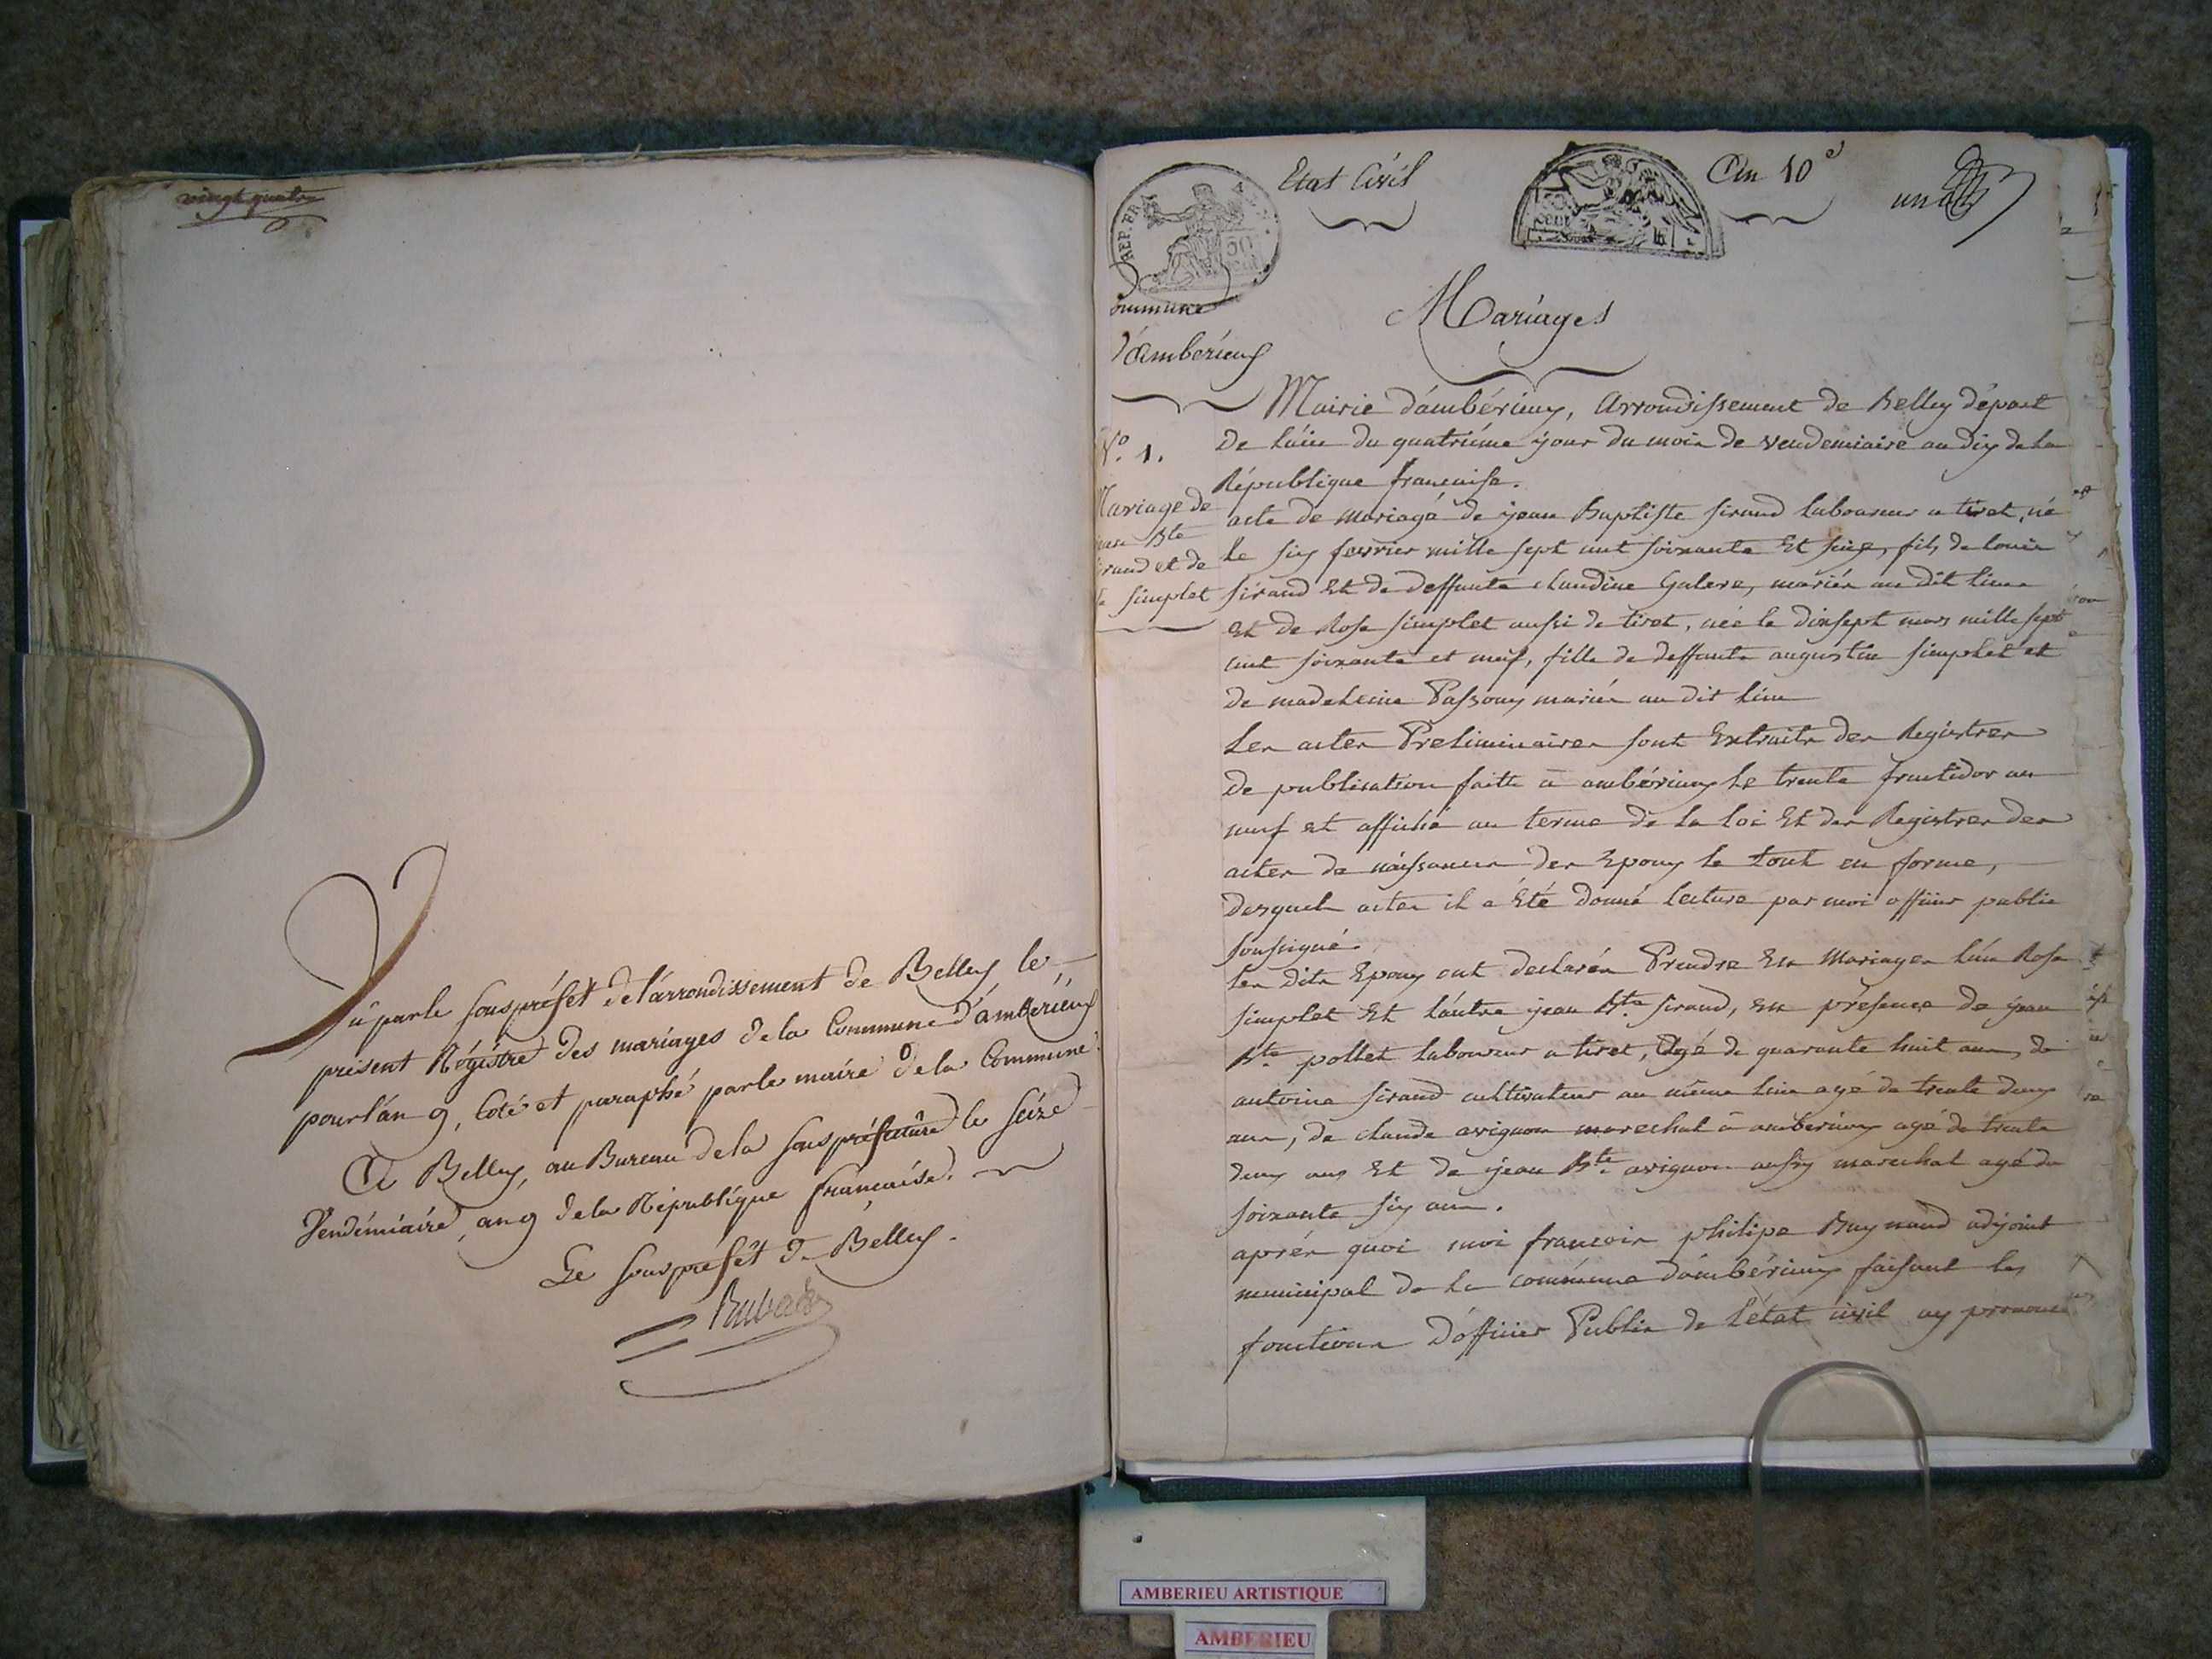 vingt quatre
Vû par le sous préfet de l'arrondissement de Belley le
présent Régistre des mariages de la Commune d'ambérieux
pour l'an 9, Coté et paraphé par le maire de la Commune.
A Belley, au Bureau de la sous préfecture le seize
Vendémiaire, an 9 de la République française.
Le sous préfêt de Belley.
REP. FRA
50
Etat Civil
An 10e
un
Commune
d'Ambérieux
Mariages
No. 1.
Mariage de
jean Bte
sirand et de
simplet
Mairie d'ambérieux, Arrondissement de Belley départ
De l'ain du quatriéme jour du mois de vendemiaire an dix de la
République francaise.
acte de mariage de jean Baptiste sirand laboureur a tiret, né
le six fevrier mille sept cent soixante et seize, fils de louis
sirand Et de deffunte claudine Galere, mariés au dit lieu
Et de Rose simplet aussi de tiret, née le dixsept mars mille sept
cent soixante et neuf, fille de deffunte augustin simplet et
de madeleine Passoux mariés au dit lieu
les actes Preliminaires sont Extraits des Registres
de publication faitte à ambérieux le trente fructidor an
neuf et affiché au terme de la loi Et des Registres des
actes de naissances des Epoux le tout en forme,
desquels actes il a été donné lecture par moi officier public
soussigné.
les dits Epoux ont declarés Prendre En Mariages l'un Rose
simplet Et l'autre jean Bte sirand, en présence de jean
Bte pollet laboureur a tiret, Agé de quarante huit ans, de
antoine sirand cultivateur au même lieu agé de trente deux
ans, de claude avignon marechal à amberieux agé de trente
deux ans Et de jean Bte avignon aussy marechal agé de
soixante six ans.
aprés quoi moi francois philipe Buynand adjoint
municipal de la commune d'ambérieux faisant les
fonctions D'officier Public de l'état civil ay prononcé
AMBERIEU ARTISTIQUE
AMBERIEU